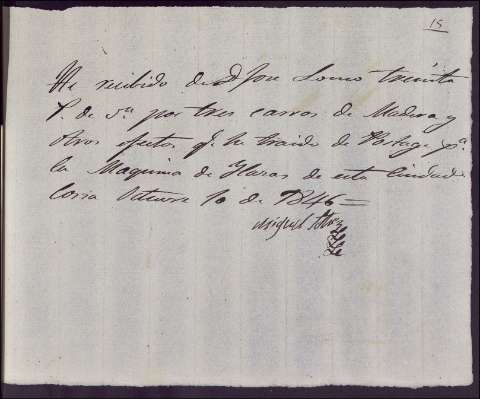 15
He recibido de D. Jose Lomo treinta
P. de 5.ª por tres carros de Madera y
Otros efectos q.e ha traido de Portage p.ª
la Maquina de Ylazas de esta Ciudad
Coria Octubre 10 de 1846 =
Miguel